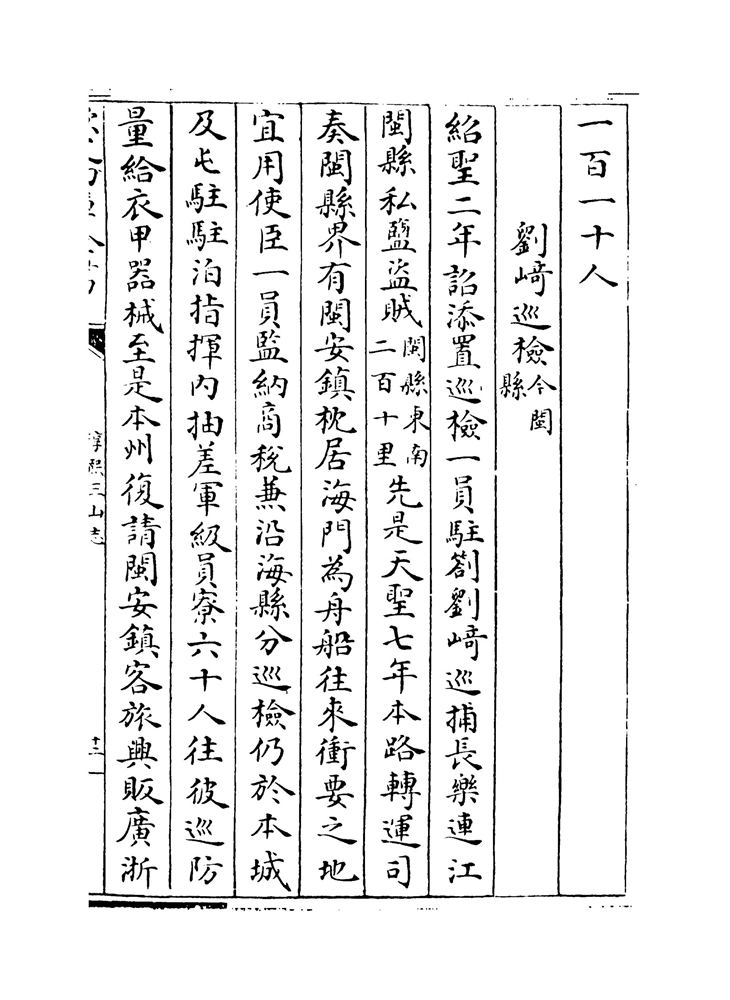 一百一十人
劉崎巡檢今閩縣
紹聖二年詔添置巡檢一員駐劄劉崎巡捕長樂連江
閩縣私鹽盜賊閩縣東南二百十里先是天聖七年本路轉運司
奏閩縣界有閩安鎮枕居海門為舟船往來衝要之地
宜用使臣一員監納商稅兼沿海縣分巡檢仍於本城
及屯駐駐泊指揮內抽差軍級員寮六十人往彼巡防
量給衣甲器械至是本州復請閩安鎮客旅興販廣浙
淳熙三山志
十三